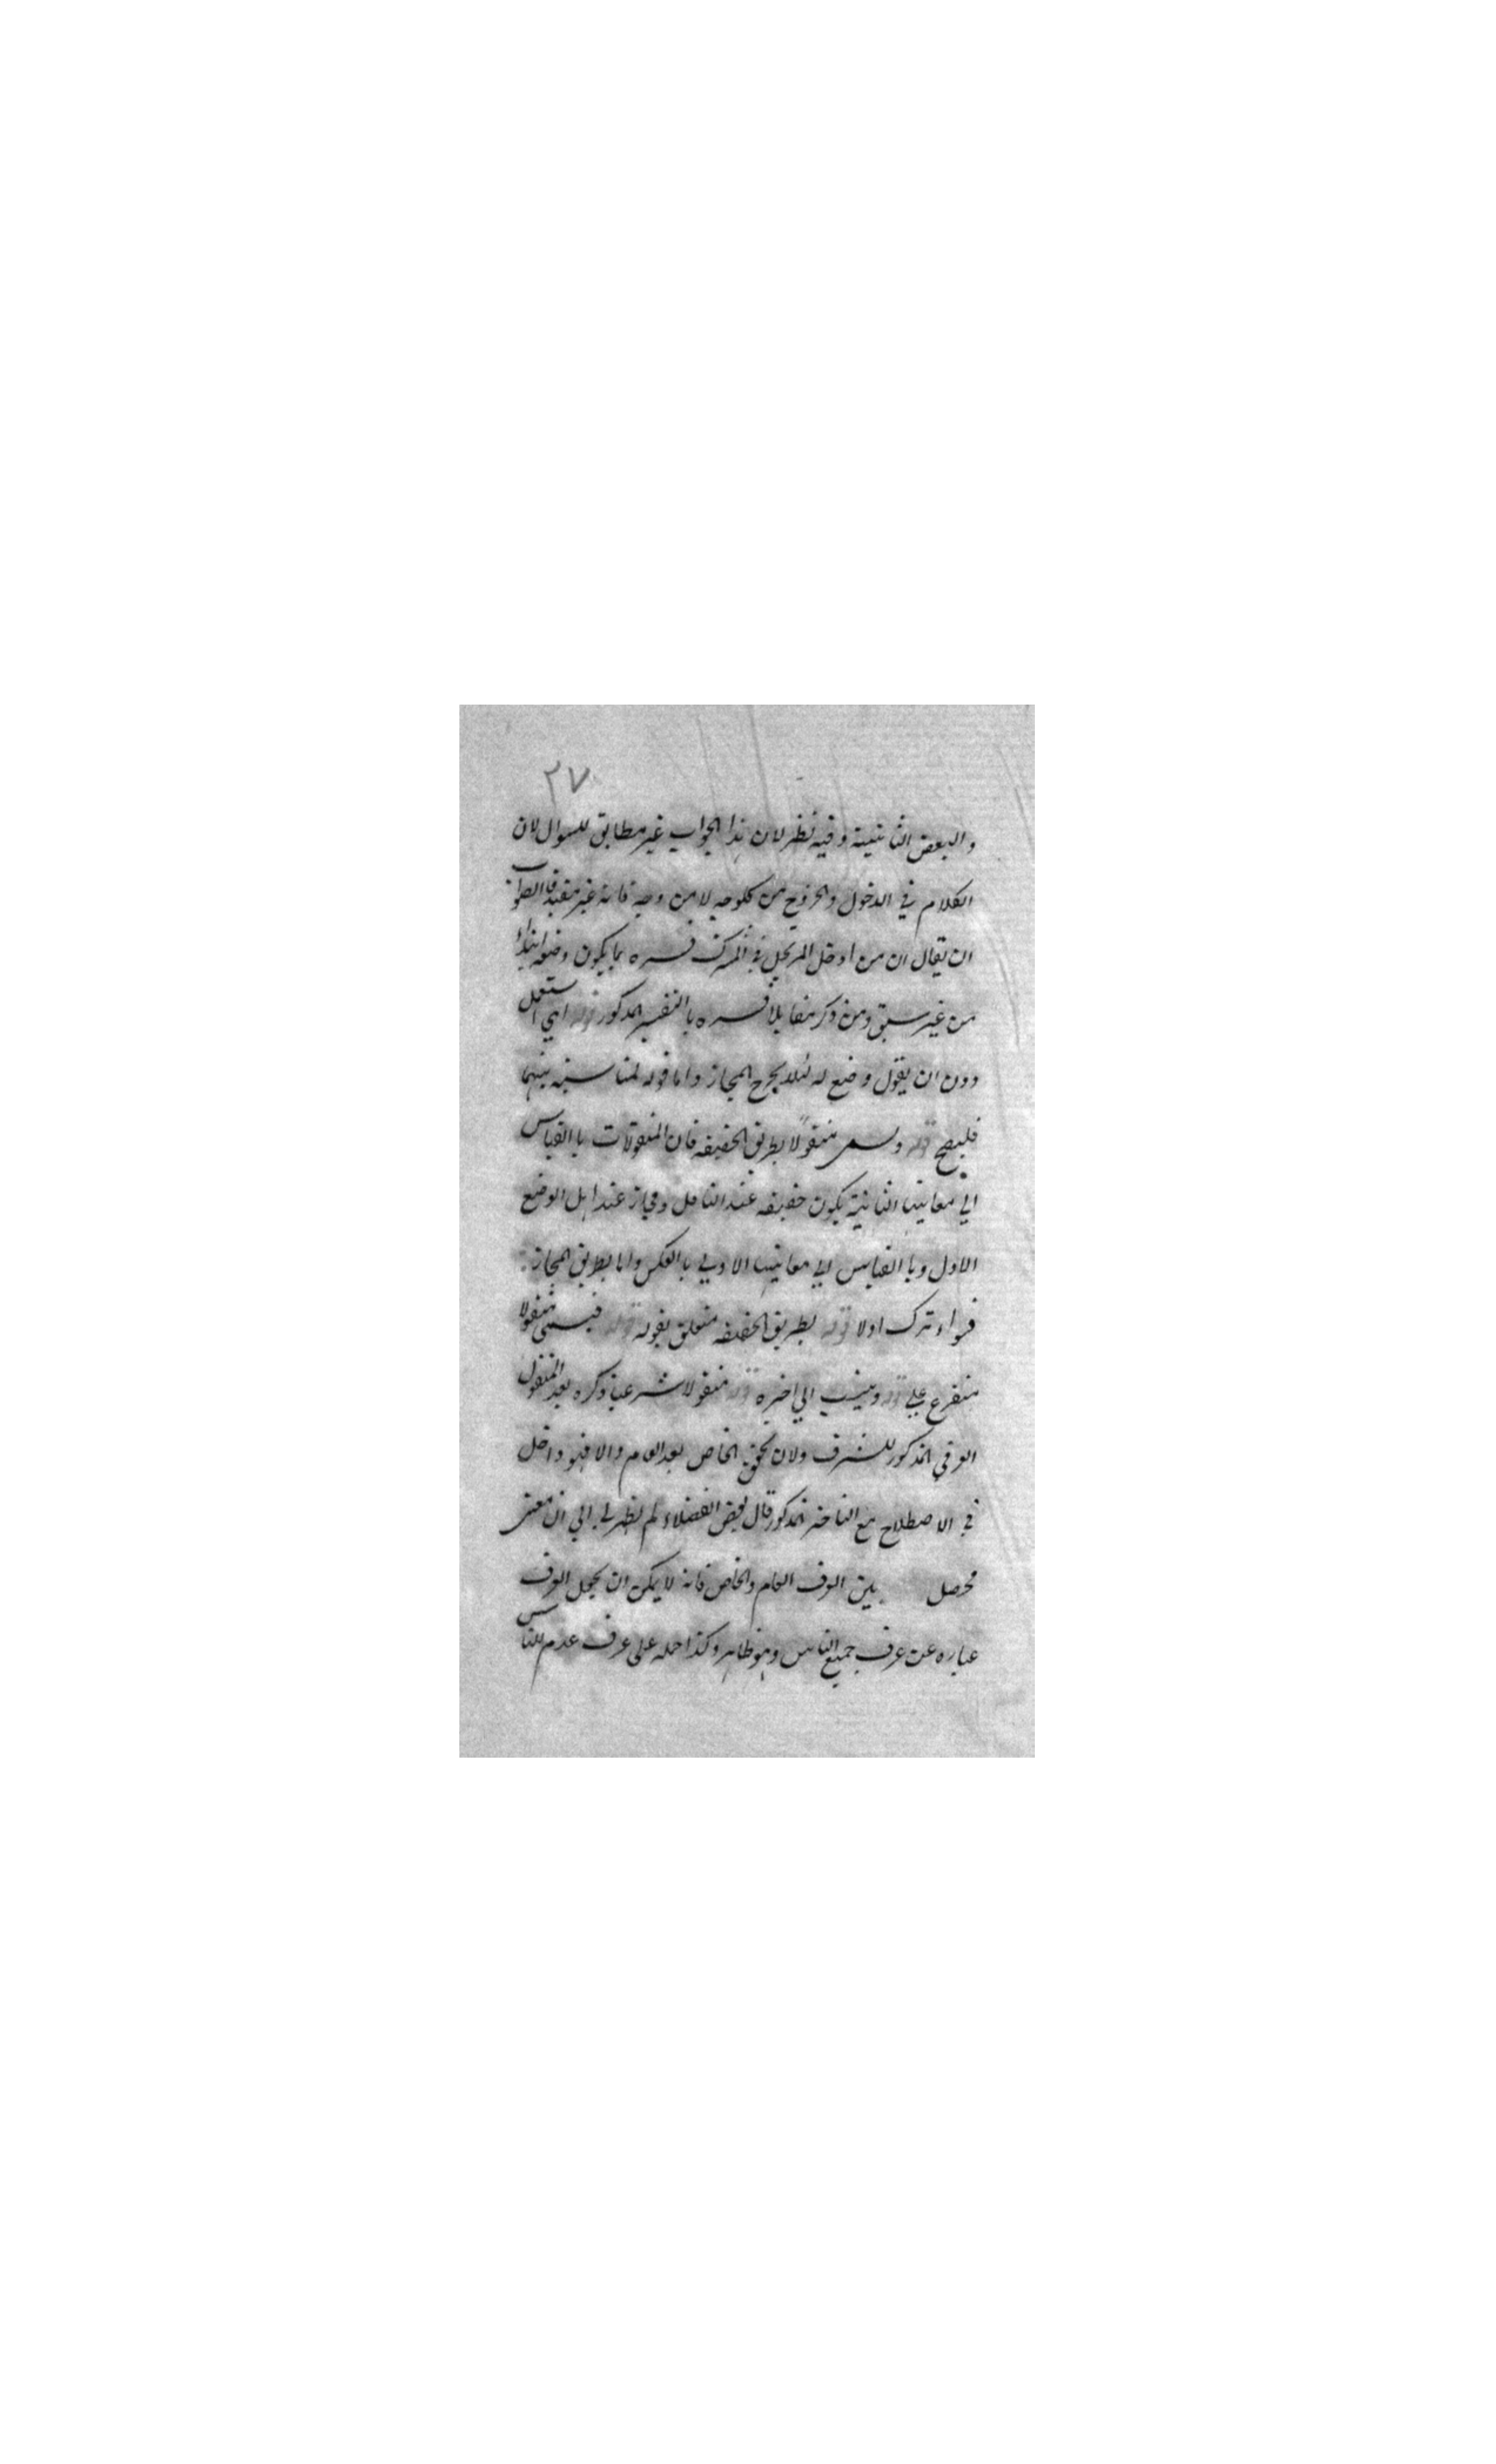 ٢٧
والبعض الثانية وفيه نظر لان هذا الجواب غير مطابق للسوال لان
الكلام في الدخول والخروج من كلوجه لا من وجه فانه غير مفيد فالصواب
ان يقال ان من ادخل المرتجل في المشترك فسره بما يكون وضعه ابتداء
من غير سبق ومن ذكر مقابلا فسره بالتفسير المذكور قوله اي استعمل
دون ان يقول وضع له لئلا يخرج المجاز واما قوله لمناسبة بينهما
قوله وسمى منقولا بطريق الحقيقه فان المنقولات باالقياس
الي معانيها الثانية يكون حقيقه عند الناقل ومجاز عند اهل الوضع
الاول وباالقياس الي معانيها الاولي باالعكس واما بطريق المجاز
فسواء ترك اولا قوله بطريق الحقيقه متعلق بقوله قوله فيسمى منقولا
متفرع علي قوله وينسب الي اخره قوله منقولا شرعيا ذكره بعد المنقول
العرفي المذكور للشرف ولان تحقق الخاص بعد العام والا فهو داخل
في الاصطلاح مع التاخير المذكور قال بعض الفضلاء لم يظهر لي الي الان معنى
محصل بين العرف العام والخاص فانه لا يمكن ان يجعل العرف
عباره عن عرف جميع الناس وهو ظاهر وكذا حمله على عرف عدم للناس